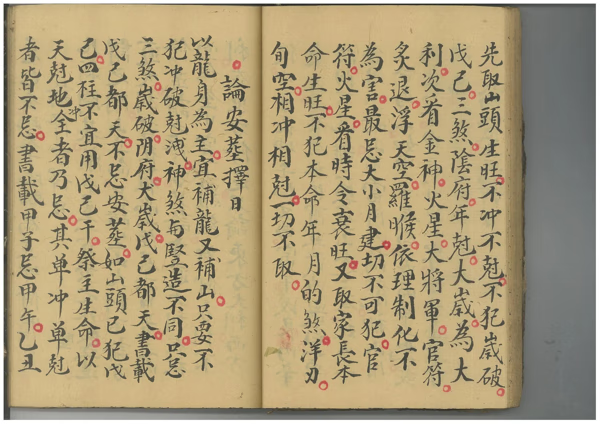 先取山頭生旺不冲不尅不犯嵗破
戊己三煞陰府年尅大嵗為大
利次看金神火星大將軍官符
炙退浮天空羅睺依理制化不
為害最忌大小月建切不可犯官
符火星看時令衰旺又取家長本
命生旺不犯本命年月的煞洋刃
旬空相冲相尅一切不取
論安葬擇日
以龍身為主宜補龍又補山只要不
犯冲破尅洩神煞与豎造不同只忌
三煞嵗破阴府大嵗戊己都天書載
戊己都天不忌安葬如山頭已犯戊
己四柱不宜用戊己干祭主生命以
天尅地冲全者乃忌其单冲单尅
者皆不忌書載甲子忌甲午乙丑